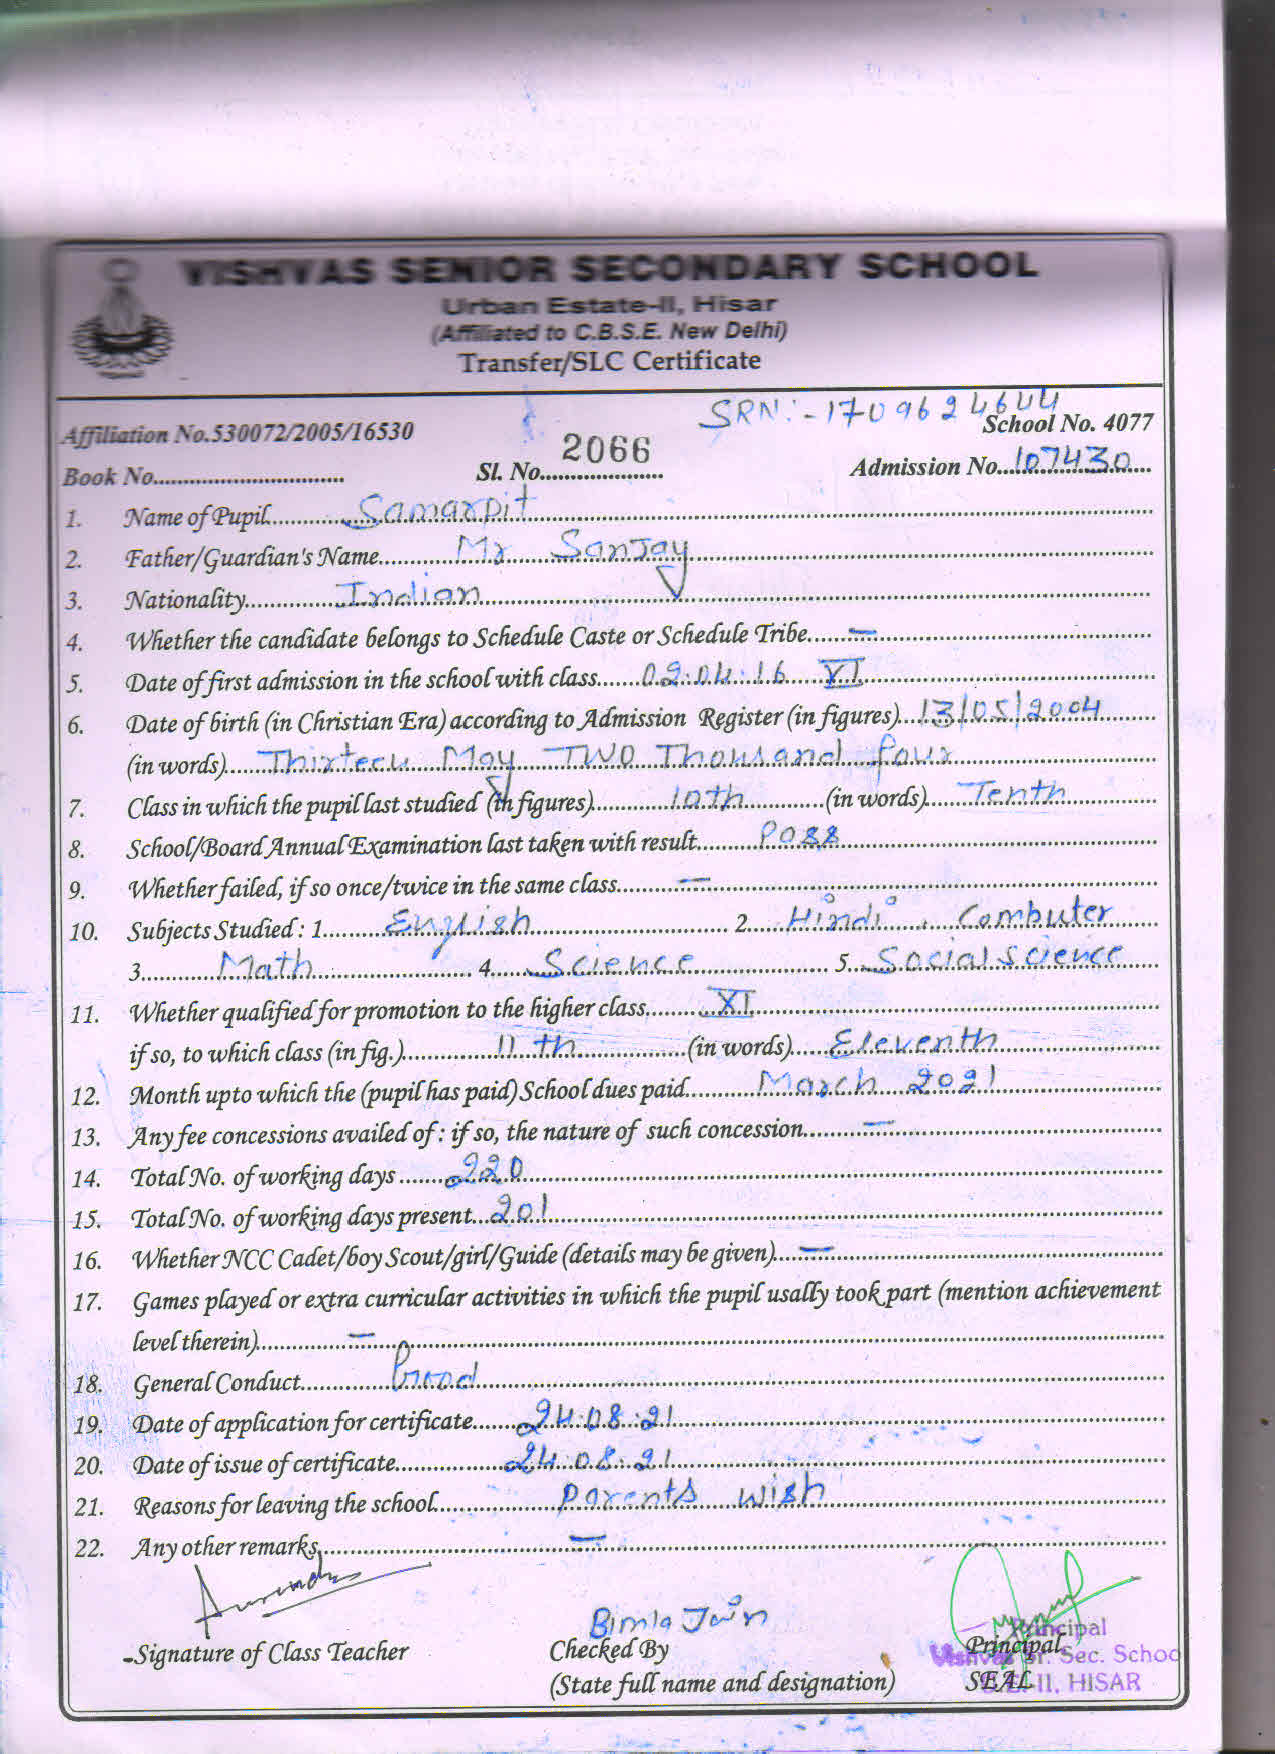 VISHVAS SENIOR SECONDARY SCHOOL
Urban Estate-II, Hisar
(Affiliated to C.B.S.E. New Delhi)
Transfer/SLC Certificate
SRN:-1709624644
Affiliation No.530072/2005/16530 School No. 4077
Book No.............................. Sl. No. 2066 Admission No. 107430
1. Name of Pupil Samarpit
2. Father/Guardian's Name Mr Sanjay
3. Nationality Indian
4. Whether the candidate belongs to Schedule Caste or Schedule Tribe —
5. Date of first admission in the school with class 02.04.16 VI
6. Date of birth (in Christian Era) according to Admission Register (in figures) 13/05/2004
(in words) Thirteen May TWO Thousand four
7. Class in which the pupil last studied (in figures) 10th (in words) Tenth
8. School/Board Annual Examination last taken with result Pass
9. Whether failed, if so once/twice in the same class —
10. Subjects Studied : 1. English 2. Hindi, Computer
3. Math 4. Science 5. Social science
11. Whether qualified for promotion to the higher class XI
if so, to which class (in fig.) 11th (in words) Eleventh
12. Month upto which the (pupil has paid) School dues paid March 2021
13. Any fee concessions availed of : if so, the nature of such concession —
14. Total No. of working days 220
15. Total No. of working days present 201
16. Whether NCC Cadet/boy Scout/girl/Guide (details may be given) —
17. Games played or extra curricular activities in which the pupil usally took part (mention achievement
level therein) —
18. General Conduct Good
19. Date of application for certificate 24.08.21
20. Date of issue of certificate 24.08.21
21. Reasons for leaving the school Parents wish
22. Any other remarks —
Bimla Jain
Signature of Class Teacher Checked By Principal
(State full name and designation) SEAL
Principal
Vishvas Sr. Sec. School
U.E.-II, HISAR